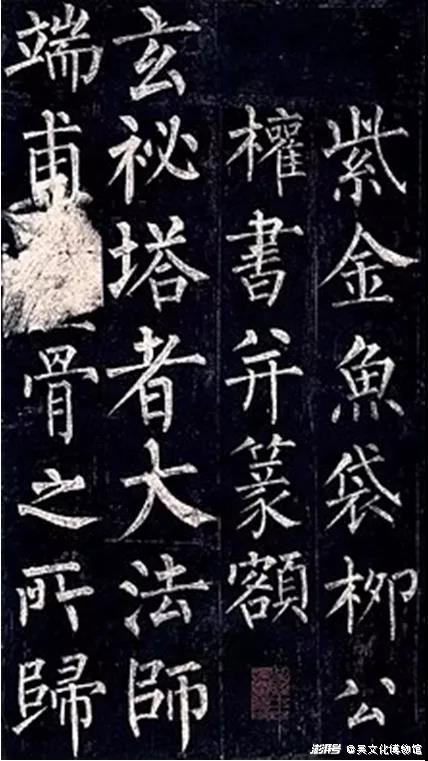 紫金魚袋柳公
權書并篆額
玄祕塔者大法師
端甫骨之所歸
澎湃号 @吴文化博物馆